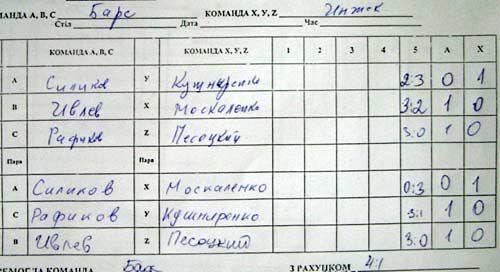 КОМАНДА А, В, С Барс КОМАНДА X, У, Z Инжек
Стіл Дата Час
КОМАНДА А, В, С КОМАНДА X, У, Z 1 2 3 4 5 А X
А Силиков У Кушниренко 2:3 0 1
В Ивлев X Москаленко 3:2 1 0
С Рафиков Z Песоцкий 3:0 1 0
Пара Пара
А Силиков X Москаленко 0:3 0 1
С Рафиков У Кушниренко 3:1 1 0
В Ивлев Z Песоцкий 3:0 1 0
КОМАНДА Барс З РАХУНКОМ 4:1